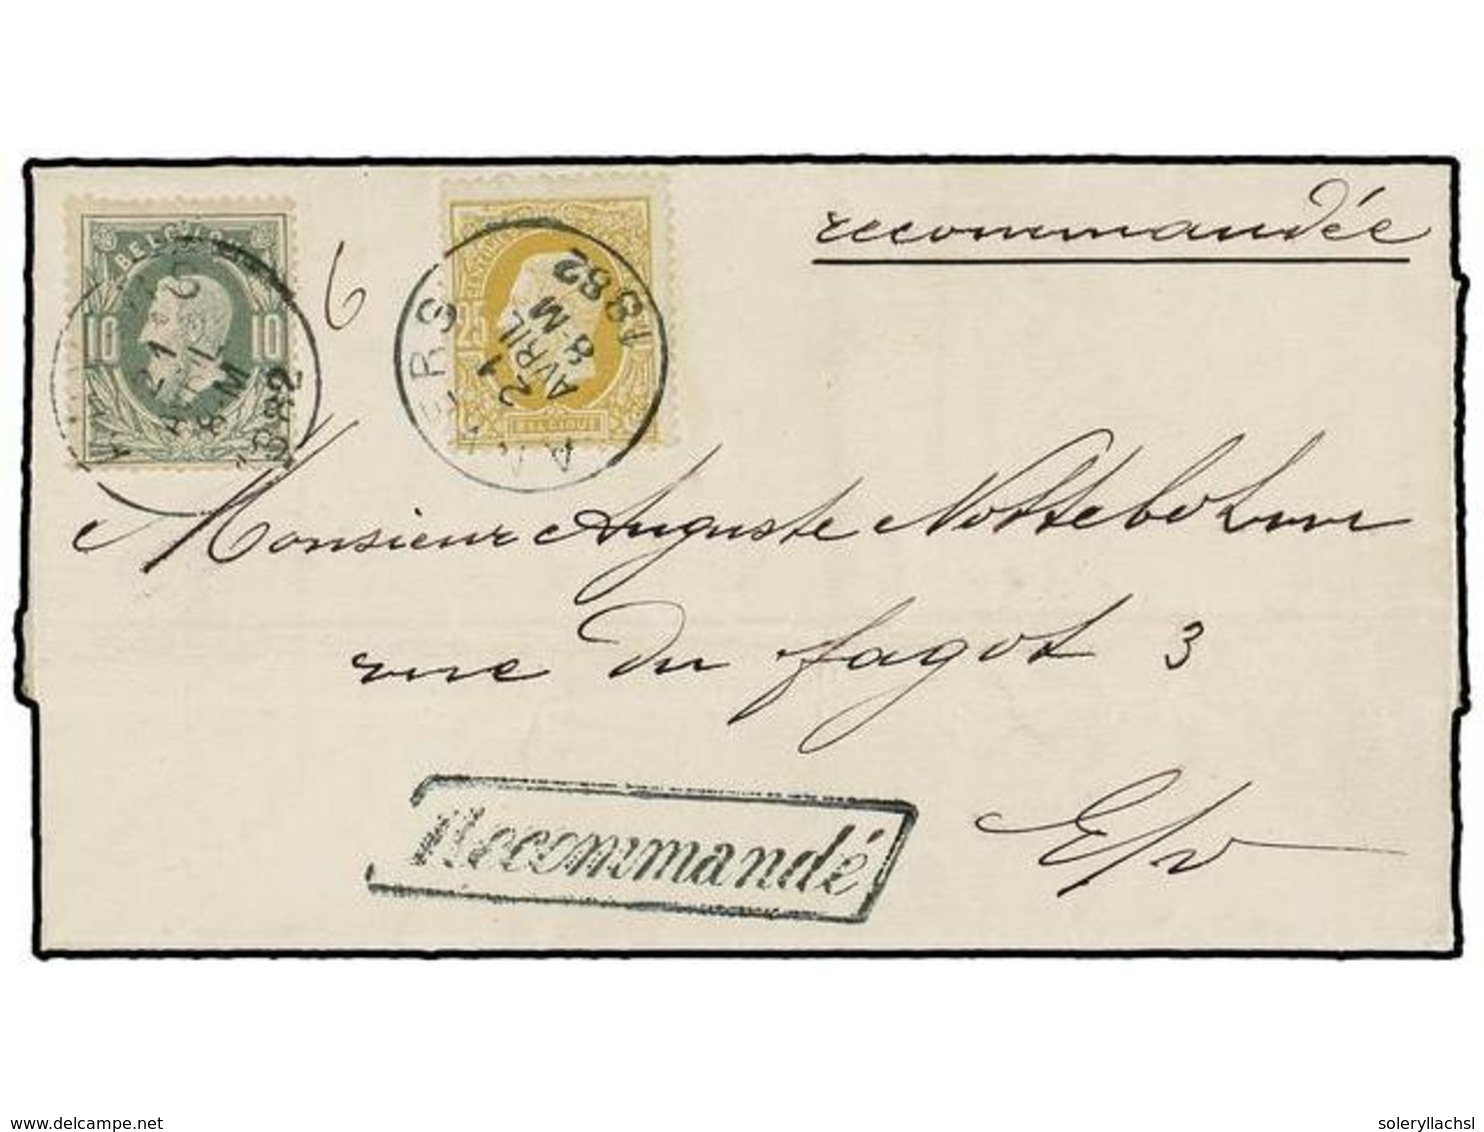 recommandée
BELGIQUE
10 10
6
25
BELGIQUE
ANVERS
21
AVRIL
8-M
1882
Monsieur Auguste Nottebohm
rue du fagot 3
E/v
Recommandé
www.delcampe.net
soleryllachsl